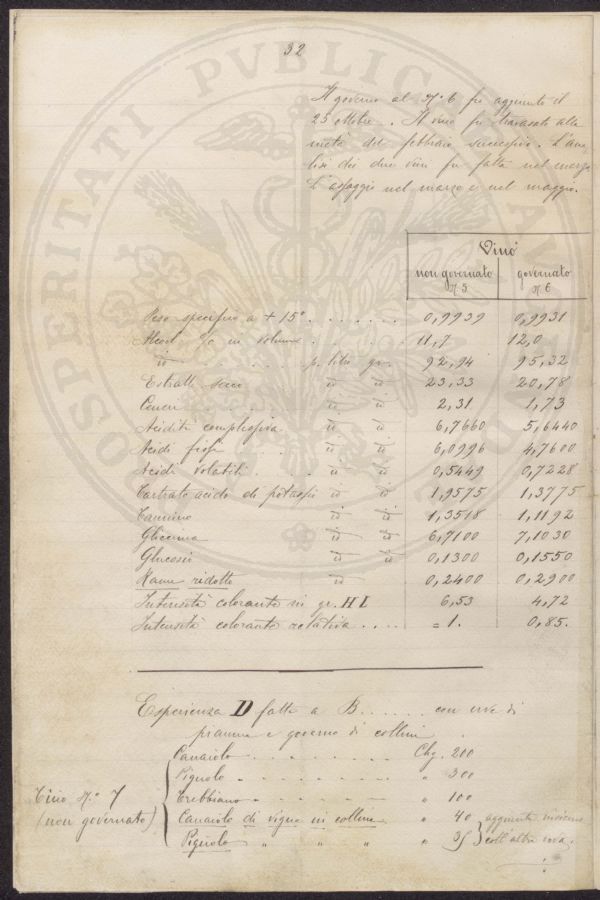 32
Il governo al N.º 6 fu aggiunto il
25 ottobre. Il vino fu travasato alla
metà del febbraio successivo. L'ana
lisi dei due vini fu fatta nel marzo
L'assaggio nel marzo e nel maggio.
Vino
non governato governato
N. 5 N. 6
Peso specifico a + 15º . . . . . . 0,9939 0,9931
Alcool % in volume . . . . . 11,7 12,0
id . . . . . p. litro gr. 92,94 95,32
Estratto secco id id 23,33 20,78
Ceneri . . . . id id 2,31 1,73
Acidità complessiva id id 6,7660 5,6440
Acidi fissi . . . id id 6,0996 4,7600
Acidi volatili . . . id id 0,5449 0,7228
Tartrato acido di potassio id id 1,9575 1,3775
Tannino id id 1,3518 1,1192
Glicerina id id 6,7100 7,1030
Glucosio id id 0,1300 0,1550
Rame ridotto id 0,2400 0,2900
Intensità colorante in gr. H I 6,53 4,72
Intensità colorante relativa . . . . = 1. 0,85.
Esperienza D fatta a B . . . . . . con uve di
pianura e governo di collina
Canaiolo . . . . . . . . Chg. 200
Pignolo . . . . . . . . " 300
Tino N.º 7 Trebbiano . . . . . . . . " 100
(non governato) Canaiolo di vigna in collina " 40 aggiunti insieme
Pignolo " " " " 35 coll'altra uva.
PROSPERITATI PVBLICAE